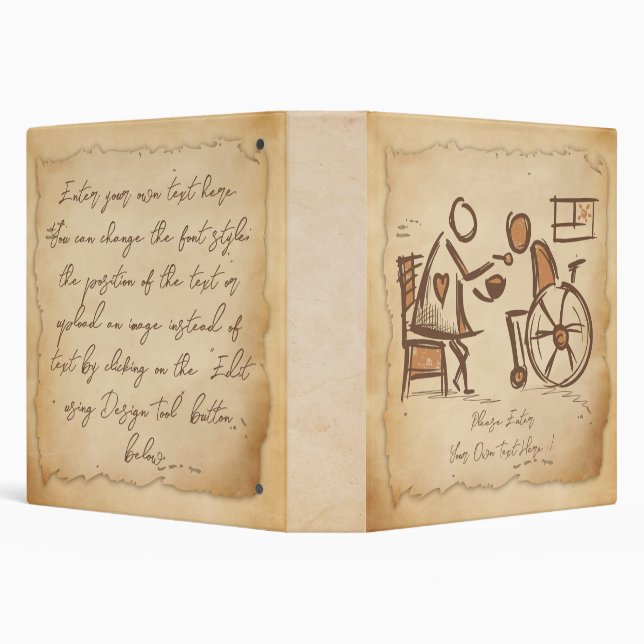 Enter your own text here.
You can change the font style,
the position of the text or
upload an image instead of
text by clicking on the "Edit
using Design tool" button
below.
Please Enter
Your Own Text Here !